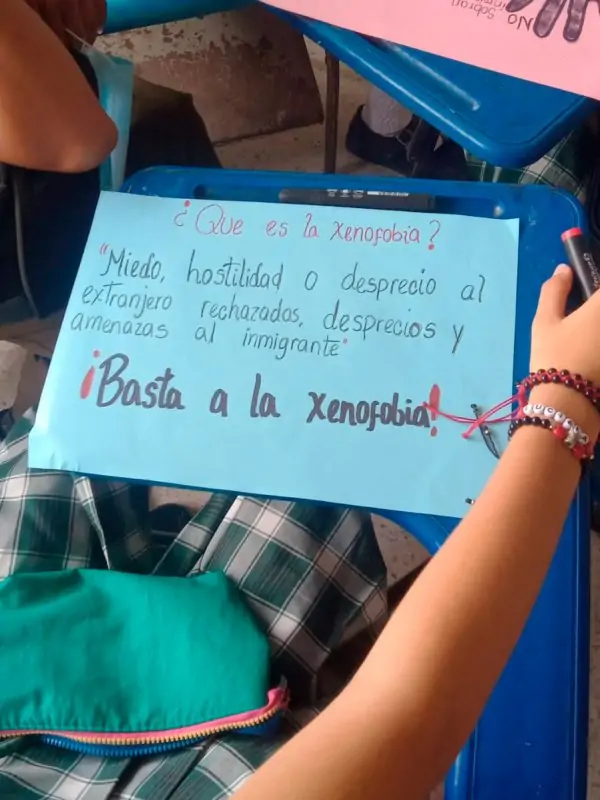 ¿Que es la xenofobia?
"Miedo, hostilidad o desprecio al
extranjero rechazados, desprecios y
amenazas al inmigrante"
¡Basta a la xenofobia!
No